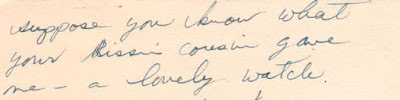 suppose you know what
your kissin cousin gave
me - a lovely watch.